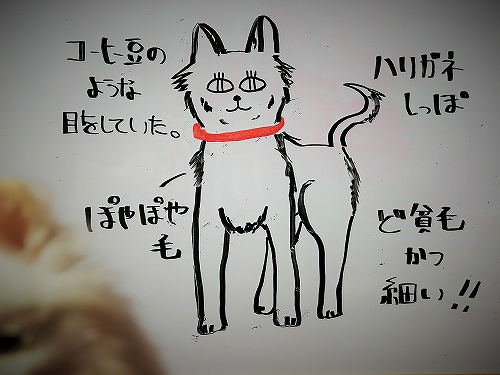 コーヒー豆の
ような
目をしていた。
ハリガネ
しっぽ
ぽやぽや
毛
ど貧毛
かつ
細い!!